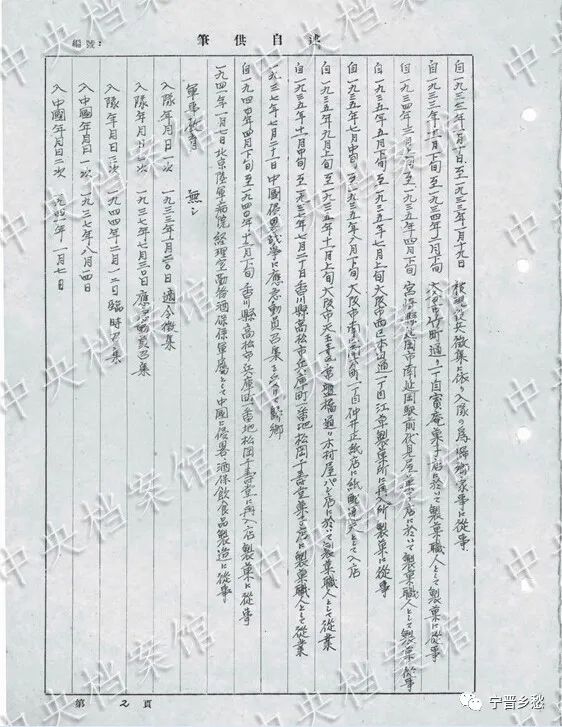 編號：
筆供自述
自一九三三年一月十日至一九三三年一月十九日 現役兵徴集に依り入隊の為帰郷家事に従事
自一九三三年十二月下旬至一九三四年二月下旬 二丁目寶庵菓子店に於いて製菓職人として製菓に従事
自一九三四年三月上旬至一九三五年四月下旬 宮崎縣延岡市南延岡駅前伏見屋菓子店に於いて製菓職人として製菓に従事
自一九三五年五月下旬至一九三五年七月上旬大阪市西区本田通一丁目江草製菓所に再入所製菓に従事
自一九三五年七月中旬至一九三五年八月下旬大阪市南区町一丁目仲井正紙店に紙職人として入店
自一九三五年九月上旬至一九三五年十一月上旬大阪市天王寺区橋通り木村屋パン店に於いて製菓職人として従業
自一九三五年十一月中旬至一九三七年七月二十日香川縣高松市兵庫町一番地松岡千壽堂菓子店に製菓職人として従業
一九三七年七月二十一日中國侵畧戦争に應急動員召集を受け帰郷
自一九四〇年四月下旬至一九四〇年十二月下旬香川縣高松市兵庫町一番地松岡千壽堂に再入店製菓に従事
一九四一年一月七日北京陸軍病院経理室勤務酒保係軍屬として中國に侵畧、酒保飲食品製造に従事
軍事教育 無シ
入隊年月日一次 一九三三年一月二〇日適令徴集
入隊年月日二次 一九三七年七月三〇日應急動員召集
入隊年月日三次 一九四四年二月一二日臨時召集
入中國年月日一次 一九三七年八月一四日
入中國年月日二次 一九四一年一月七日
第 2 頁
中央档案馆
宁晋乡愁